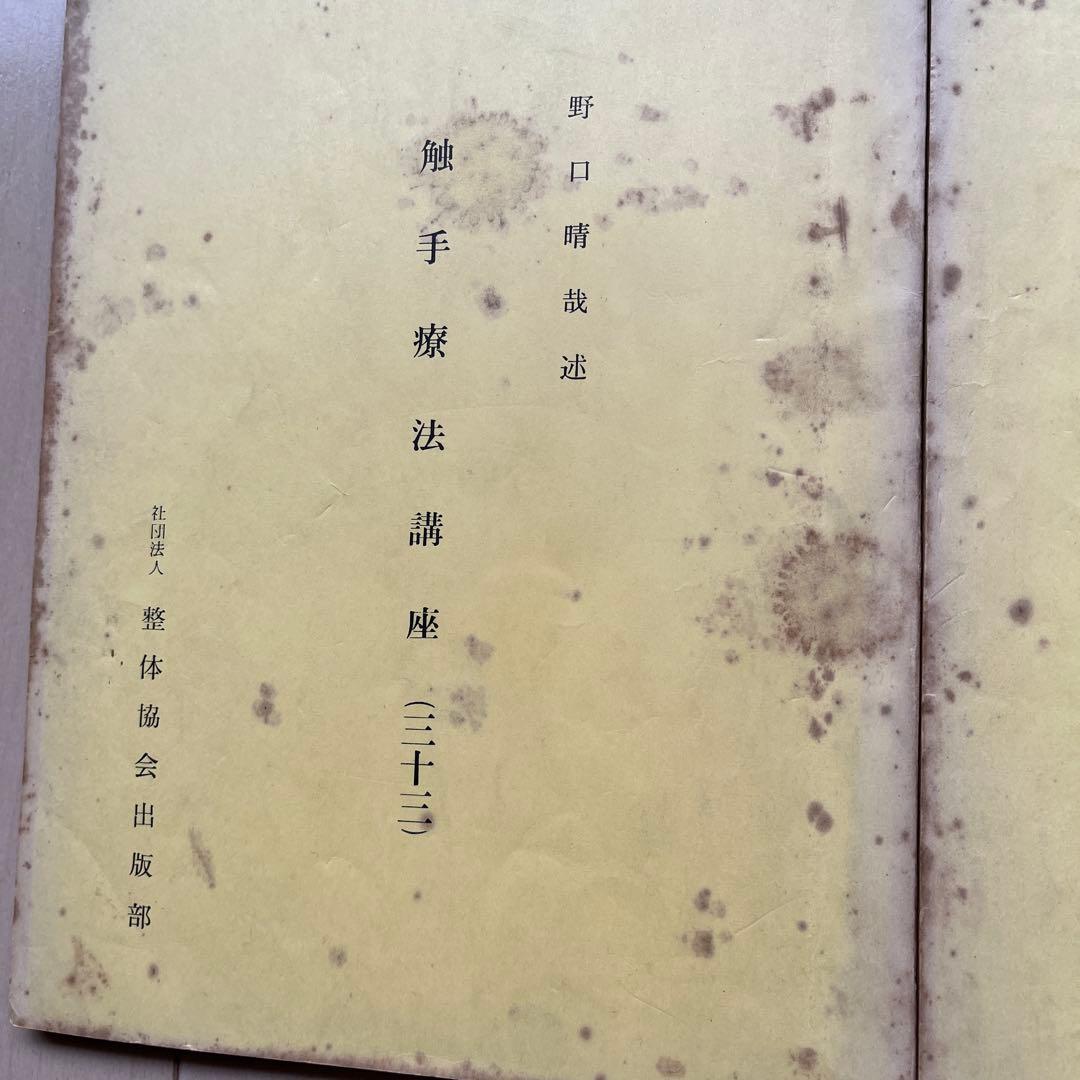 野口晴哉述
触手療法講座（三十三）
社団法人 整体協会出版部